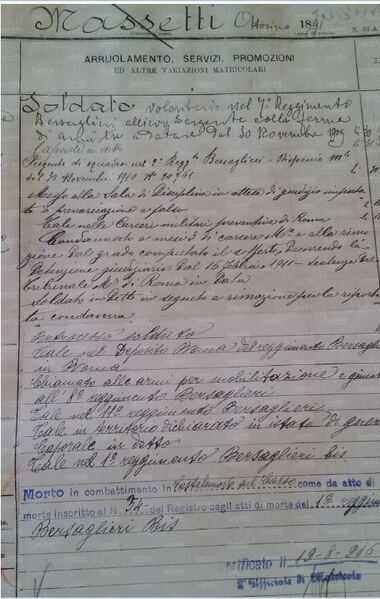 Massetti Ottorino 1891
N. 57-A
ARRUOLAMENTO, SERVIZI, PROMOZIONI
ED ALTRE VARIAZIONI MATRICOLARI
Soldato volontario nel 7° Reggimento
Bersaglieri allievo Sergente colla ferma
di anni tre a datare dal 30 Novembre 1909
Caporale in detto
di squadra nel 2° Regg.to Bersaglieri
del 30 Novembre 1910 N°
Messo alla Sala di Disciplina in attesa di giudizio imputa
to di prevaricazione e falso
Tale nelle Carceri militari preventive di Roma
Condannato a mesi 3 di carcere M.re e alla rimo
zione dal grado computato il sofferto, decorrendo la
detenzione giudiziaria dal 15 Febbraio 1911 - sentenza del
tribunale M.re di Roma in data
Soldato in detto in seguito a rimozione per la riporta
ta condanna.
Retrocesso soldato
Tale nel Deposito Roma del reggimento Bersagl
in Roma
Chiamato alle armi per mobilitazione e giunto
all' 8° reggimento Bersaglieri
Tale nel 11° reggimento Bersaglieri
Tale in territorio dichiarato in istato di guerra
Caporale in detto
Tale nel 1° reggimento Bersaglieri bis
Morto in combattimento in Castelnuovo sul Carso come da atto di
morte inscritto al N. 32 del Registro degli atti di morte del 1° reggim
Bersaglieri Bis
19-8-916
L'Ufficiale di Matricola